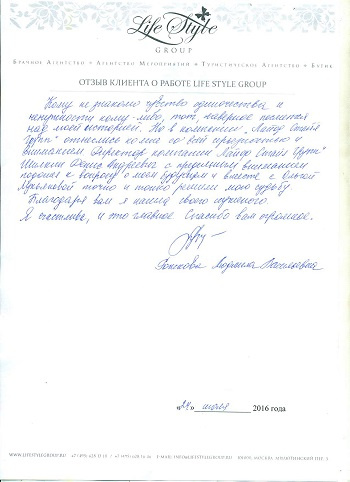 Life Style
GROUP
Брачное Агентство • Агентство Мероприятий • Туристическое Агентство • Бутик
ОТЗЫВ КЛИЕНТА О РАБОТЕ LIFE STYLE GROUP
Кому не знакомо чувство одиночества и
ненужности кому-либо, тот, наверное посмеется
над моей историей. Но в компании "Лайф Стайл
Групп" отнеслись ко мне со всей серьезностью и
вниманием. Директор компании "Лайф Стайл Групп"
Денис Андреевич с вниманием
подошел к вопросу о моем будущем и вместе с Ольгой
точно и тонко решили мою судьбу
Благодаря вам я нашла своего мужчину.
Я счастлива, и это главное. Спасибо вам огромное.
Людмила Васильевна
«24» июля 2016 года
WWW.LIFESTYLEGROUP.RU +7 (495) E-MAIL: INFO@LIFESTYLEGROUP.RU МОСКВА,